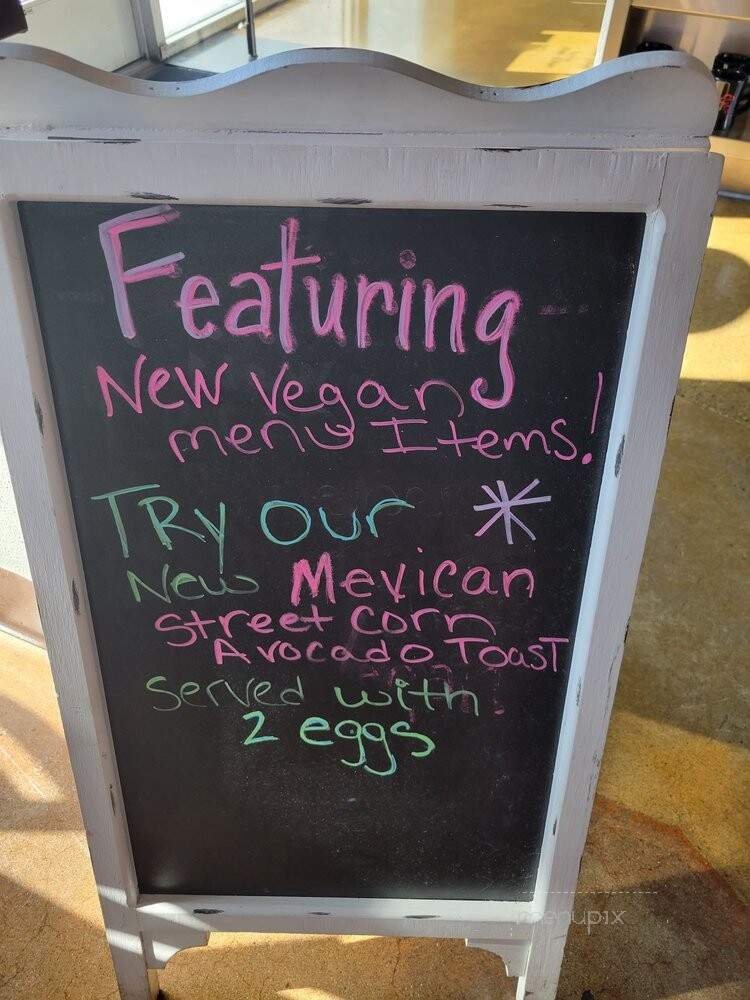 Featuring
New Vegan
menu Items!
TRy our *
New Mexican
Street Corn
Avocado Toast
Served with
2 eggs
menupix